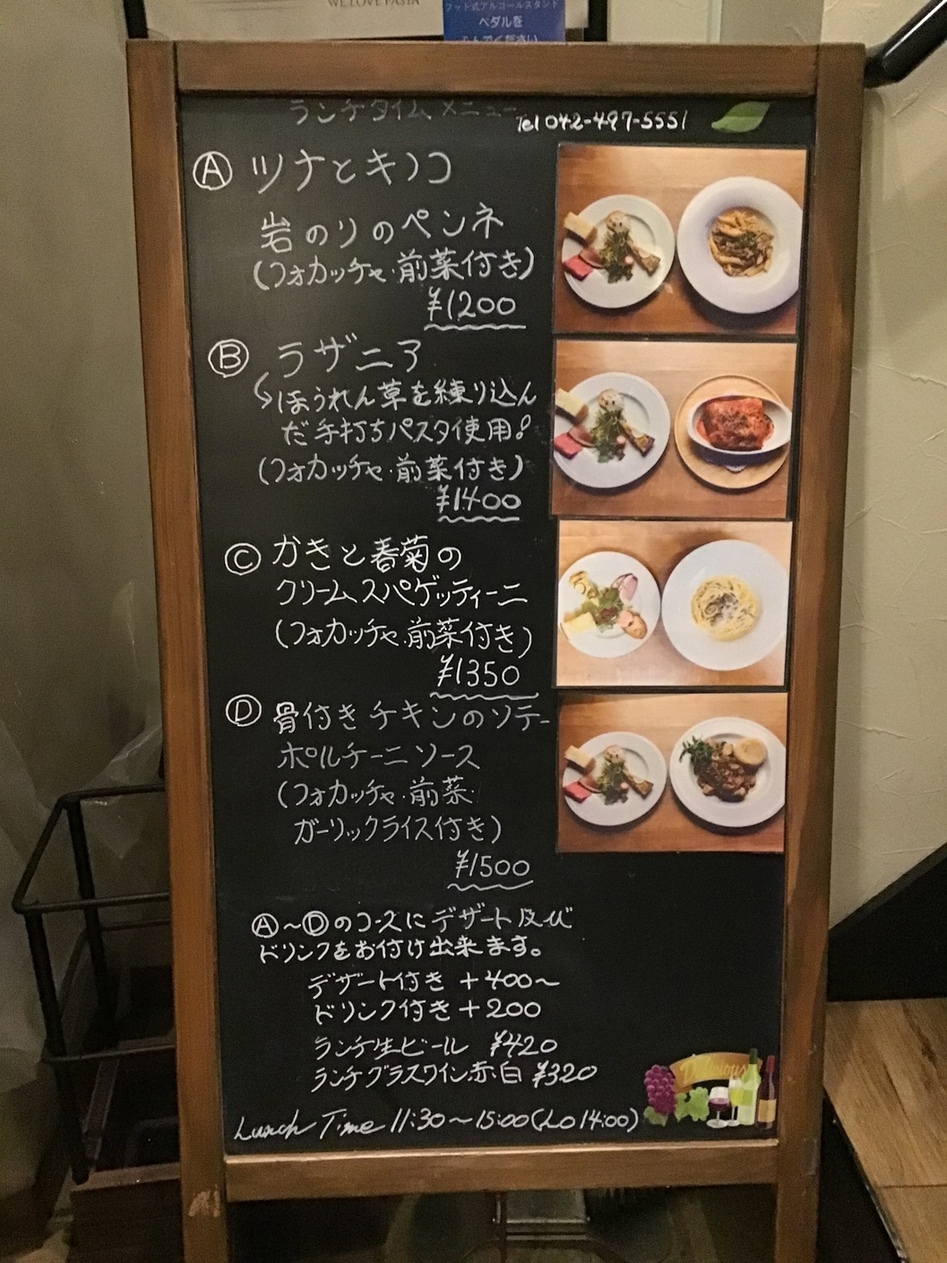 WE LOVE PASTA
フット式アルコールスタンド
ペダルを
ふんでください
ランチタイム メニュー
Tel 042-497-5551
Ⓐ ツナとキノコ
岩のりのペンネ
(フォカッチャ・前菜付き)
¥1200
Ⓑ ラザニア
ほうれん草を練り込ん
だ手打ちパスタ使用!
(フォカッチャ・前菜付き)
¥1400
Ⓒ かきと春菊の
クリームスパゲッティーニ
(フォカッチャ・前菜付き)
¥1350
Ⓓ 骨付きチキンのソテー
ポルチーニソース
(フォカッチャ・前菜・
ガーリックライス付き)
¥1500
Ⓐ〜Ⓓのコースにデザート及び
ドリンクをお付け出来ます。
デザート付き +400〜
ドリンク付き +200
ランチ生ビール ¥420
ランチグラスワイン赤・白 ¥320
Delicious
Lunch Time 11:30〜15:00(Lo 14:00)